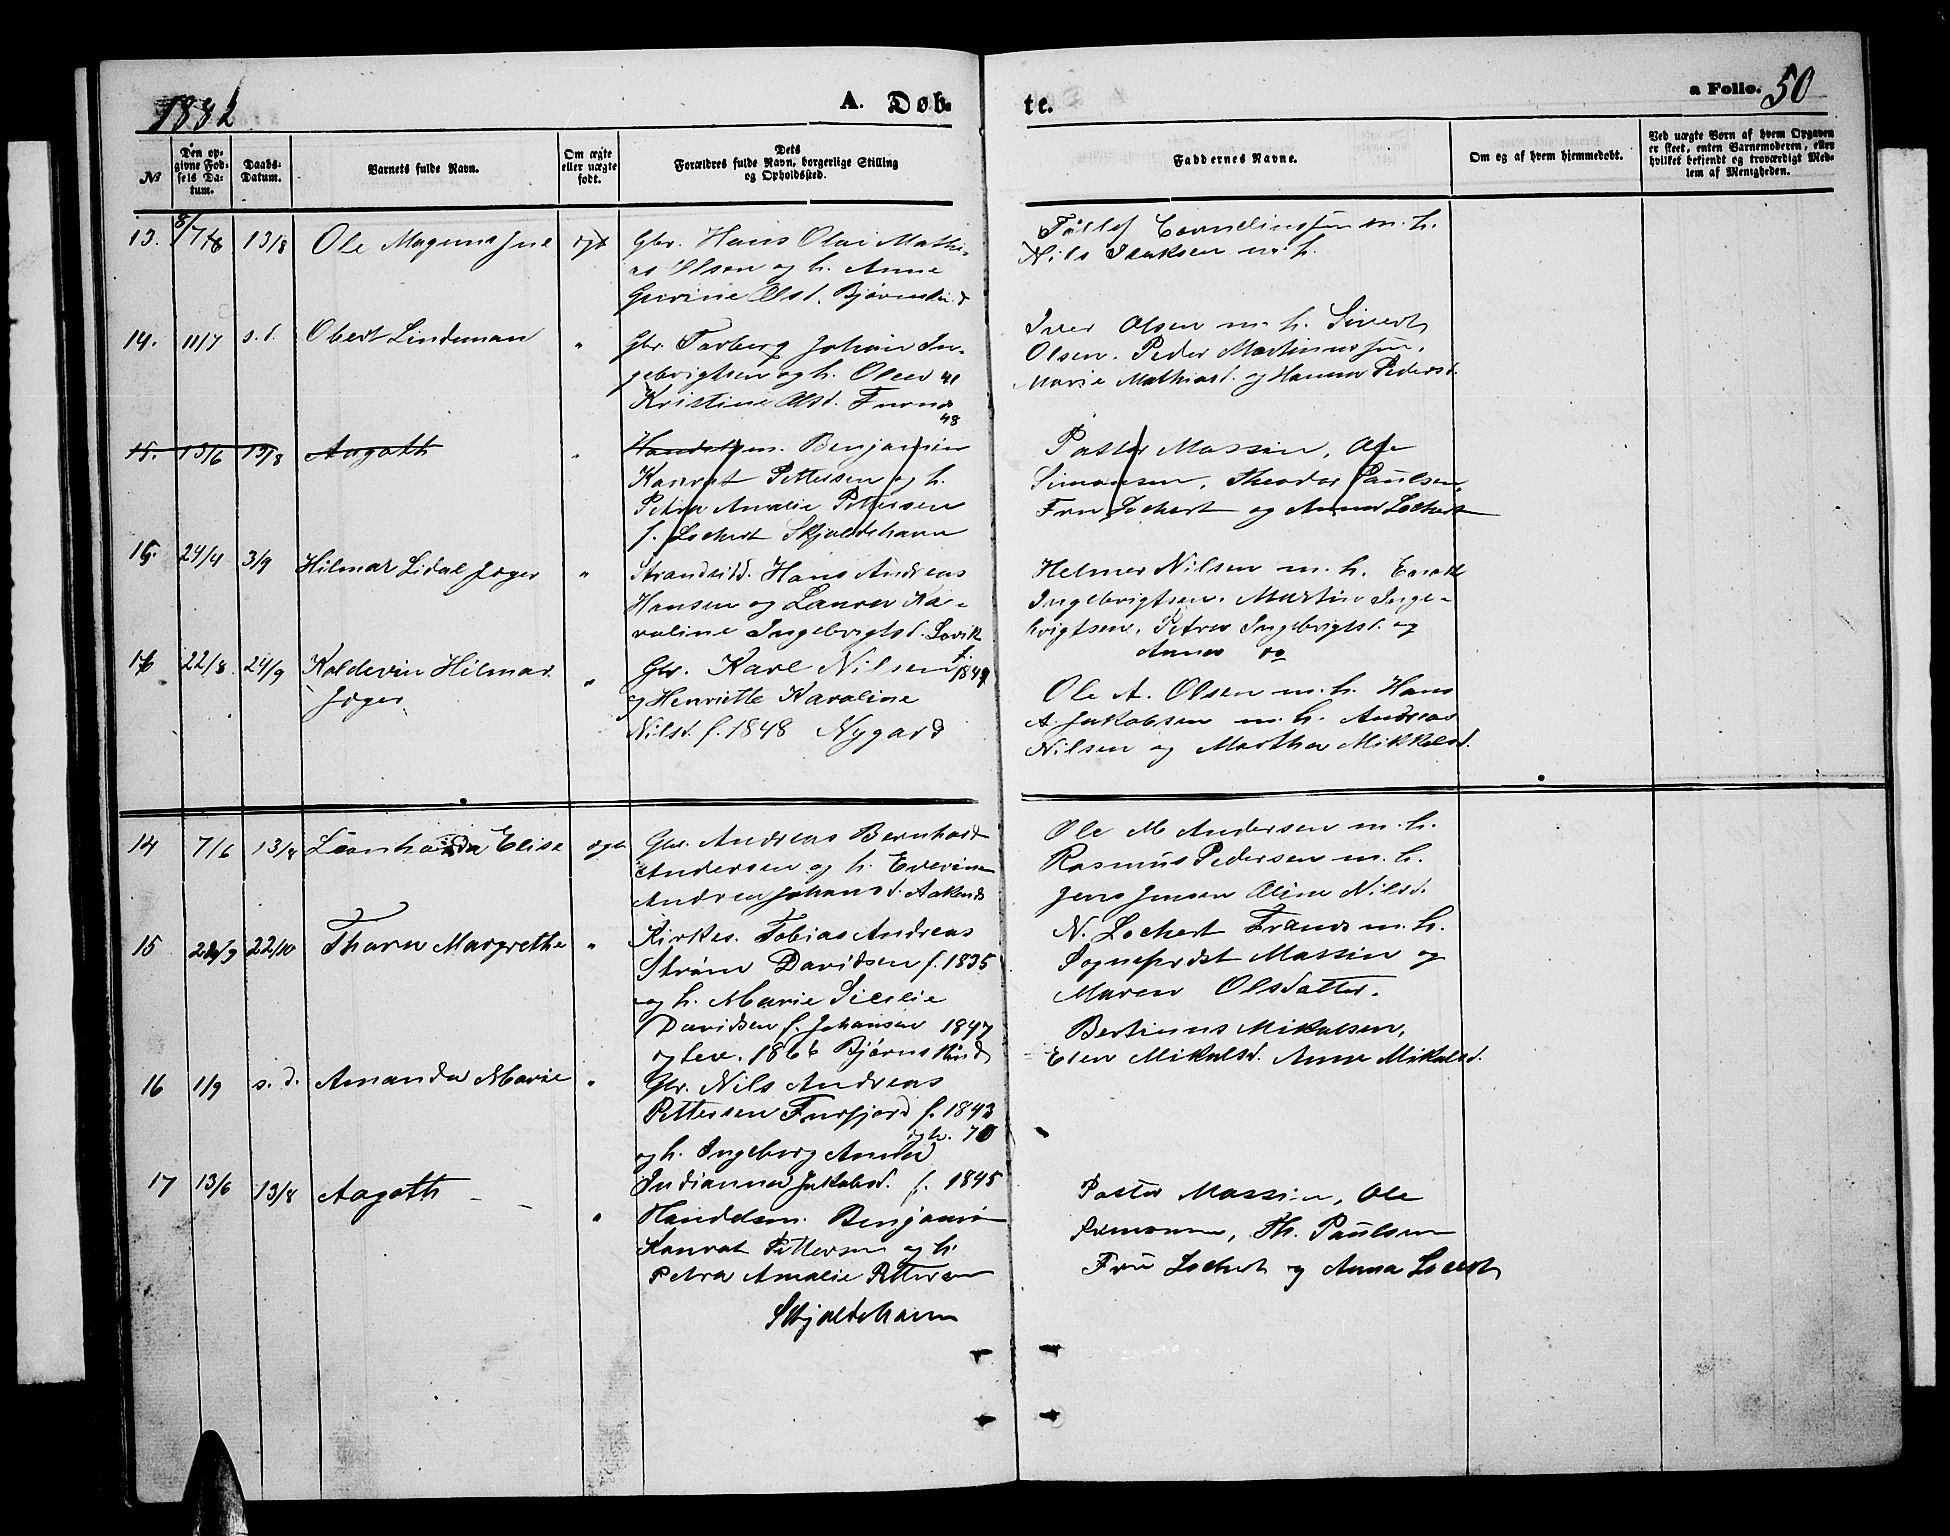 1882
A. Døb-
te.
a Folio. 50
№
Den opgivne Fødsels Datum.
Daabs-Datum.
Barnets fulde Navn.
Om ægte eller uægte født.
Dets Forældres fulde Navn, borgerlige Stilling og Opholdssted.
Faddernes Navne.
Om og af hvem hjemmedøbt.
Ved uægte Børn af hvem Opgaven er skeet, enten Barnemoderen, eller hvilket bekjendt og troværdigt Medlem af Menigheden.
13. 13/8 Ole Magnus
Gbr. Hans Olai Mathi-
as Olsen og h. Anne
Olsd.
Corneliussen m. h.
Nils Isaksen m. h.
14. 11/7 s. d. Obert Lindeman "
Gbr. Torberg Johan In-
gebrigtsen og h. Olea 41
Kristine Olsd.
48
Iver Olsen m. h. Sivert
Olsen. Peder Martinussen.
Marie Mathiasd. og Hanna Pedersd.
15. 13/6 13/8 Aagoth "
Handelsm. Benjamin
Konrat Pettersen og h.
Petra Amalie Pettersen
f. Lochert Skjoldehavn
Pastor Massin, Ole
Simonsen, Theodor Paulsen,
Fru Lochert og Anna Lochert
15. 24/4 3/9 Hilmar Lidal Jæger "
Strandsidd. Hans Andreas
Hansen og Laura Ka-
roline Ingebrigtsd.
Helmer Nilsen m. h. Enok
Ingebrigtsen. Martin Inge-
brigtsen. Petra Ingebrigtsd. og
Anna do
16 22/8. 24/9 Koldevin Hilmar
Jæger. "
Gbr. Karl Nilsen f. 1849
og Henriette Karoline
Nilsd. f. 1848 Nygard
Ole A. Olsen m. h. Hans
A. Jakobsen m. h. Andreas
Nilsen og Martha Mikkelsd.
14 7/6 13/8 Leonharda Elise ægte
Gbr. Andreas Bernhard
Andersen og h. Everine
Andrea Johansd.
Ole M Andersen m. h.
Rasmus Pedersen m. h.
Jens Jensen Oline Nilsd.
15 22/10 Thora Margrethe "
Kirkes. Tobias Andreas
Strøm Davidsen f. 1835
og h. Marie Sicilie
Davidsen f. Johansen 1847
1866 Bjørnskind
N. Lochert Frands m. h.
Sogneprest Massin og
Maren Olsdatter.
16 1/9 s. d. Amanda Marie "
Gbr. Nils Andreas
Pettersen Furfjord f. 1843
og h. Ingeborg Anna
70
Indianna Jakobsd. f. 1845
Bertinus Mikalsen,
Elen Mikalsd. Anna Mikalsd.
17 13/6 13/8 Aagoth "
Handelsm. Benjamin
Konrat Pettersen og h.
Petra Amalie Pettersen
Skjoldehavn
Pastor Massin, Ole
Simonsen, Th. Paulsen
Fru Lochert og Anna Lochert